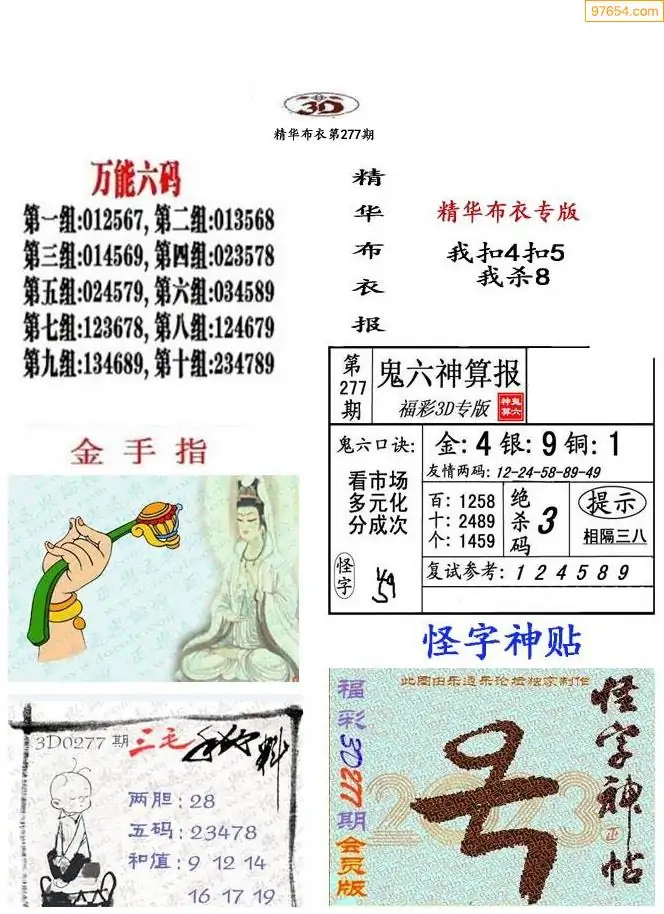 97654.com
3D
精华布衣第277期
万能六码
第一组:012567, 第二组:013568
第三组:014569, 第四组:023578
第五组:024579, 第六组:034589
第七组:123678, 第八组:124679
第九组:134689, 第十组:234789
精华布衣报
精华布衣专版
我扣4扣5
我杀8
金手指
第277期
鬼六神算报
福彩3D专版
神算鬼六
鬼六口诀:
看市场
多元化
分成次
怪字
金: 4 银: 9 铜: 1
友情两码: 12-24-58-89-49
百: 1258
十: 2489
个: 1459
绝杀码
3
提示
相隔三八
复试参考: 1 2 4 5 8 9
怪字神贴
3D0277 期 三毛
两胆: 28
五码: 23478
和值: 9 12 14
16 17 19
此图由乐造乐论坛独家制作
福彩3D277期会员版
2023
怪字神帖